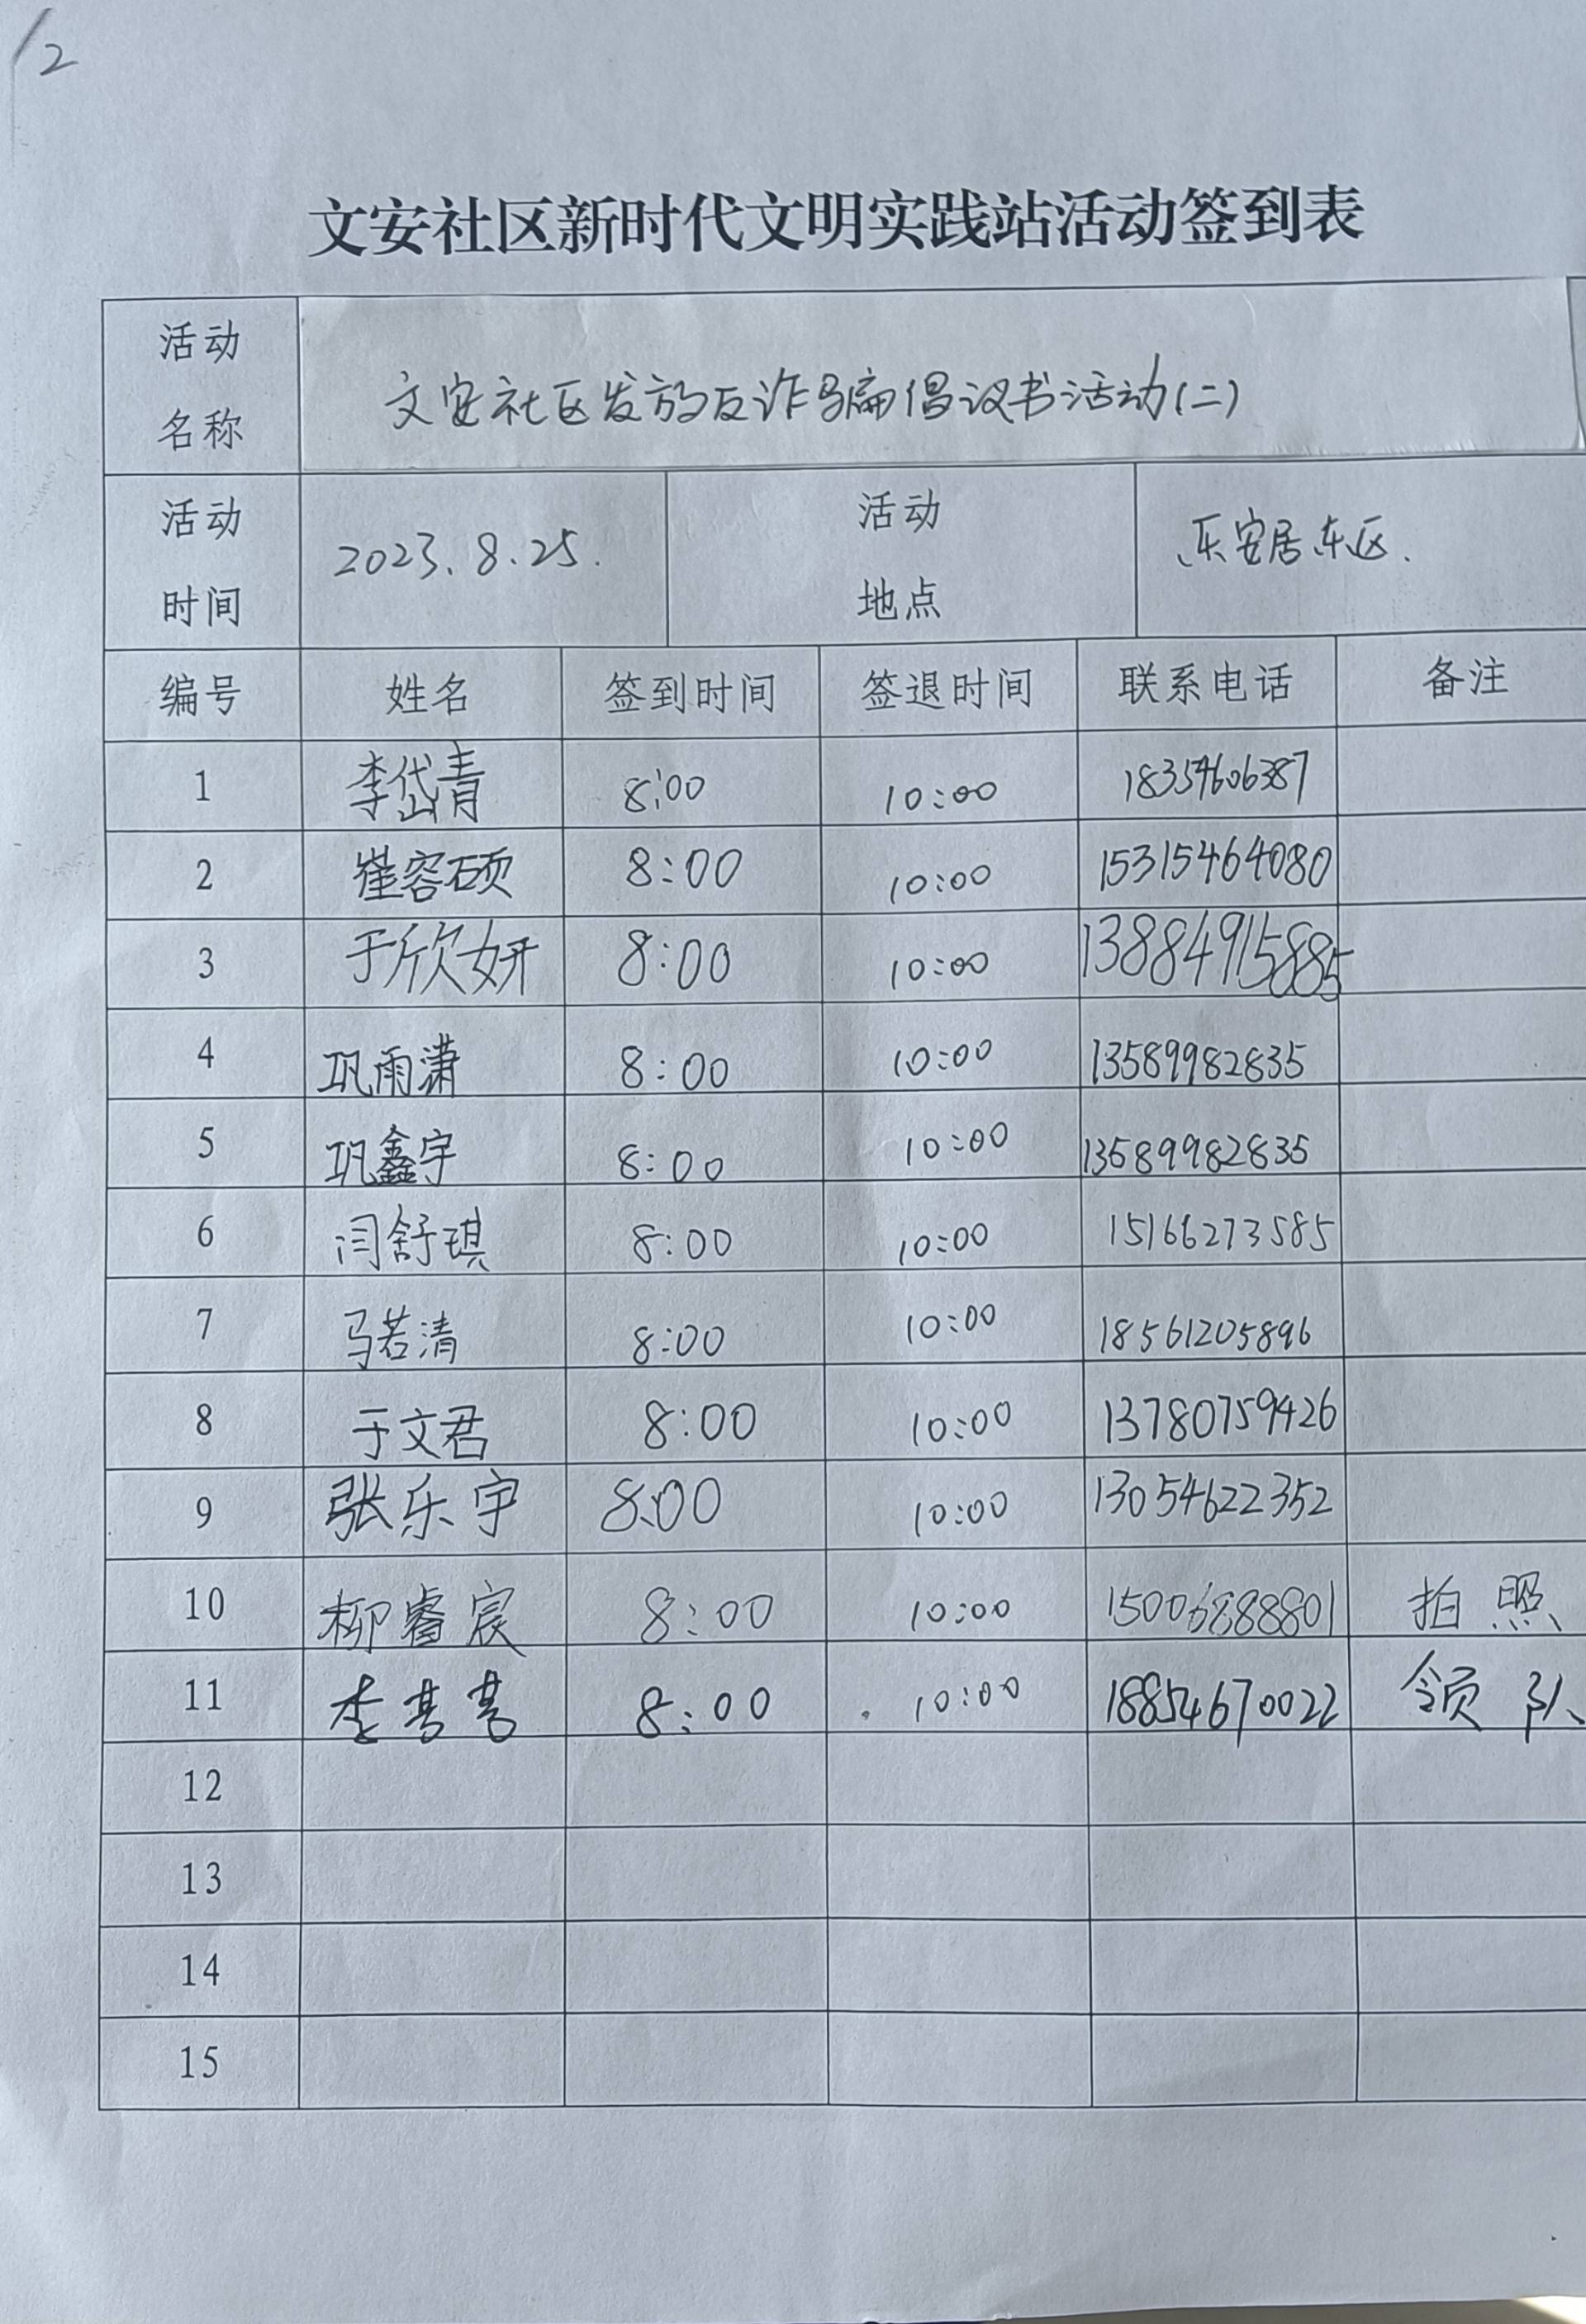 12
文安社区新时代文明实践站活动签到表
活动名称 文安社区发放反诈骗倡议书活动(二)
活动时间 2023.8.25. 活动地点 乐安居东区.
编号 姓名 签到时间 签退时间 联系电话 备注
1 李岱青 8:00 10:00 18354606387
2 崔容硕 8:00 10:00 15315464080
3 于欣妍 8:00 10:00 13884915885
4 巩雨潇 8:00 10:00 13589982835
5 巩鑫宇 8:00 10:00 13589982835
6 闫舒琪 8:00 10:00 15166273585
7 马若清 8:00 10:00 18561205896
8 于文君 8:00 10:00 13780759426
9 张乐宇 8:00 10:00 13054622352
10 柳睿宸 8:00 10:00 15006888801 拍照
11 李 8:00 10:00 18854670022 领队
12
13
14
15